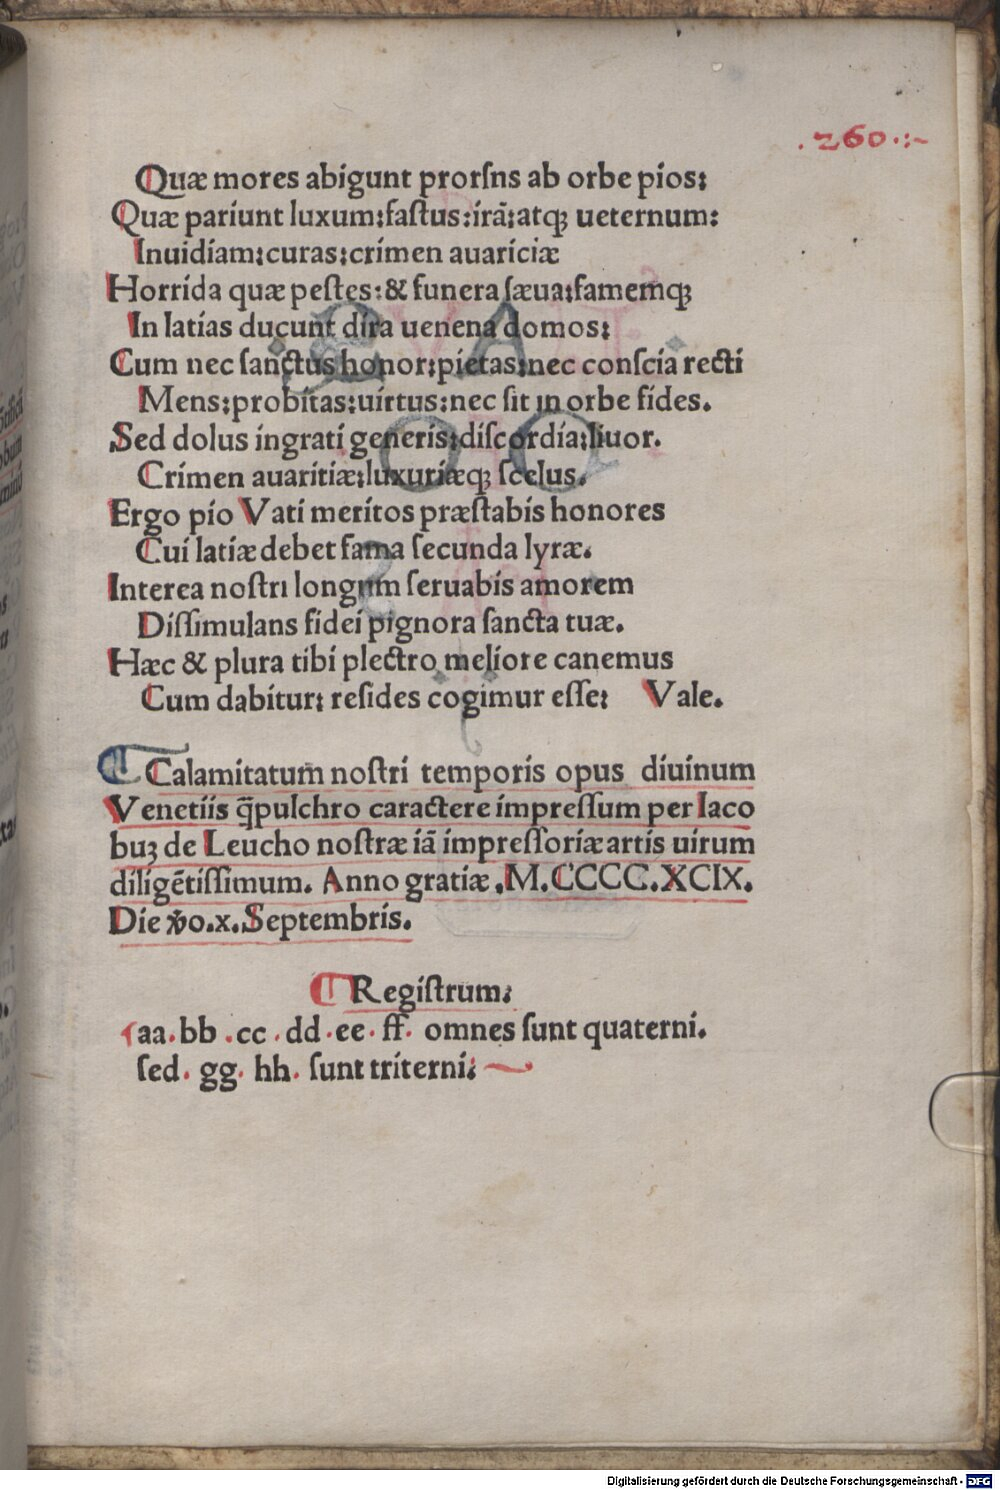 .260.:~
Quæ mores abigunt prorſns ab orbe pios:
Quæ pariunt luxum:faſtus:irā:atq; ueternum:
Inuidiam:curas:crimen auariciæ
Horrida quæ peſtes:& funera ſæua:famemq;
In latias ducunt dira uenena domos:
Cum nec ſanctus honor:pietas:nec conſcia recti
Mens:probitas:uirtus:nec ſit in orbe fides.
Sed dolus ingrati generis:diſcordia:liuor.
Crimen auaritiæ:luxuriæq; ſcelus.
Ergo pio Vati meritos præſtabis honores
Cui latiæ debet fama ſecunda lyræ.
Interea noſtri longum ſeruabis amorem
Diſſimulans fidei pignora ſancta tuæ.
Hæc & plura tibi plectro meliore canemus
Cum dabitur: reſides cogimur eſſe: Vale.
Calamitatum noſtri temporis opus diuinum
Venetiis q̄pulchro caractere impreſſum per Iaco
buʒ de Leucho noſtræ iā impreſſoriæ artis uirum
diligētiſſimum. Anno gratiæ .M.CCCC.XCIX.
Die ꝟo.x.Septembris.
Regiſtrum:
aa.bb .cc . dd.ee. ff. omnes ſunt quaterni.
ſed. gg. hh. ſunt triterni:
Digitalisierung gefördert durch die Deutsche Forschungsgemeinschaft - DFG